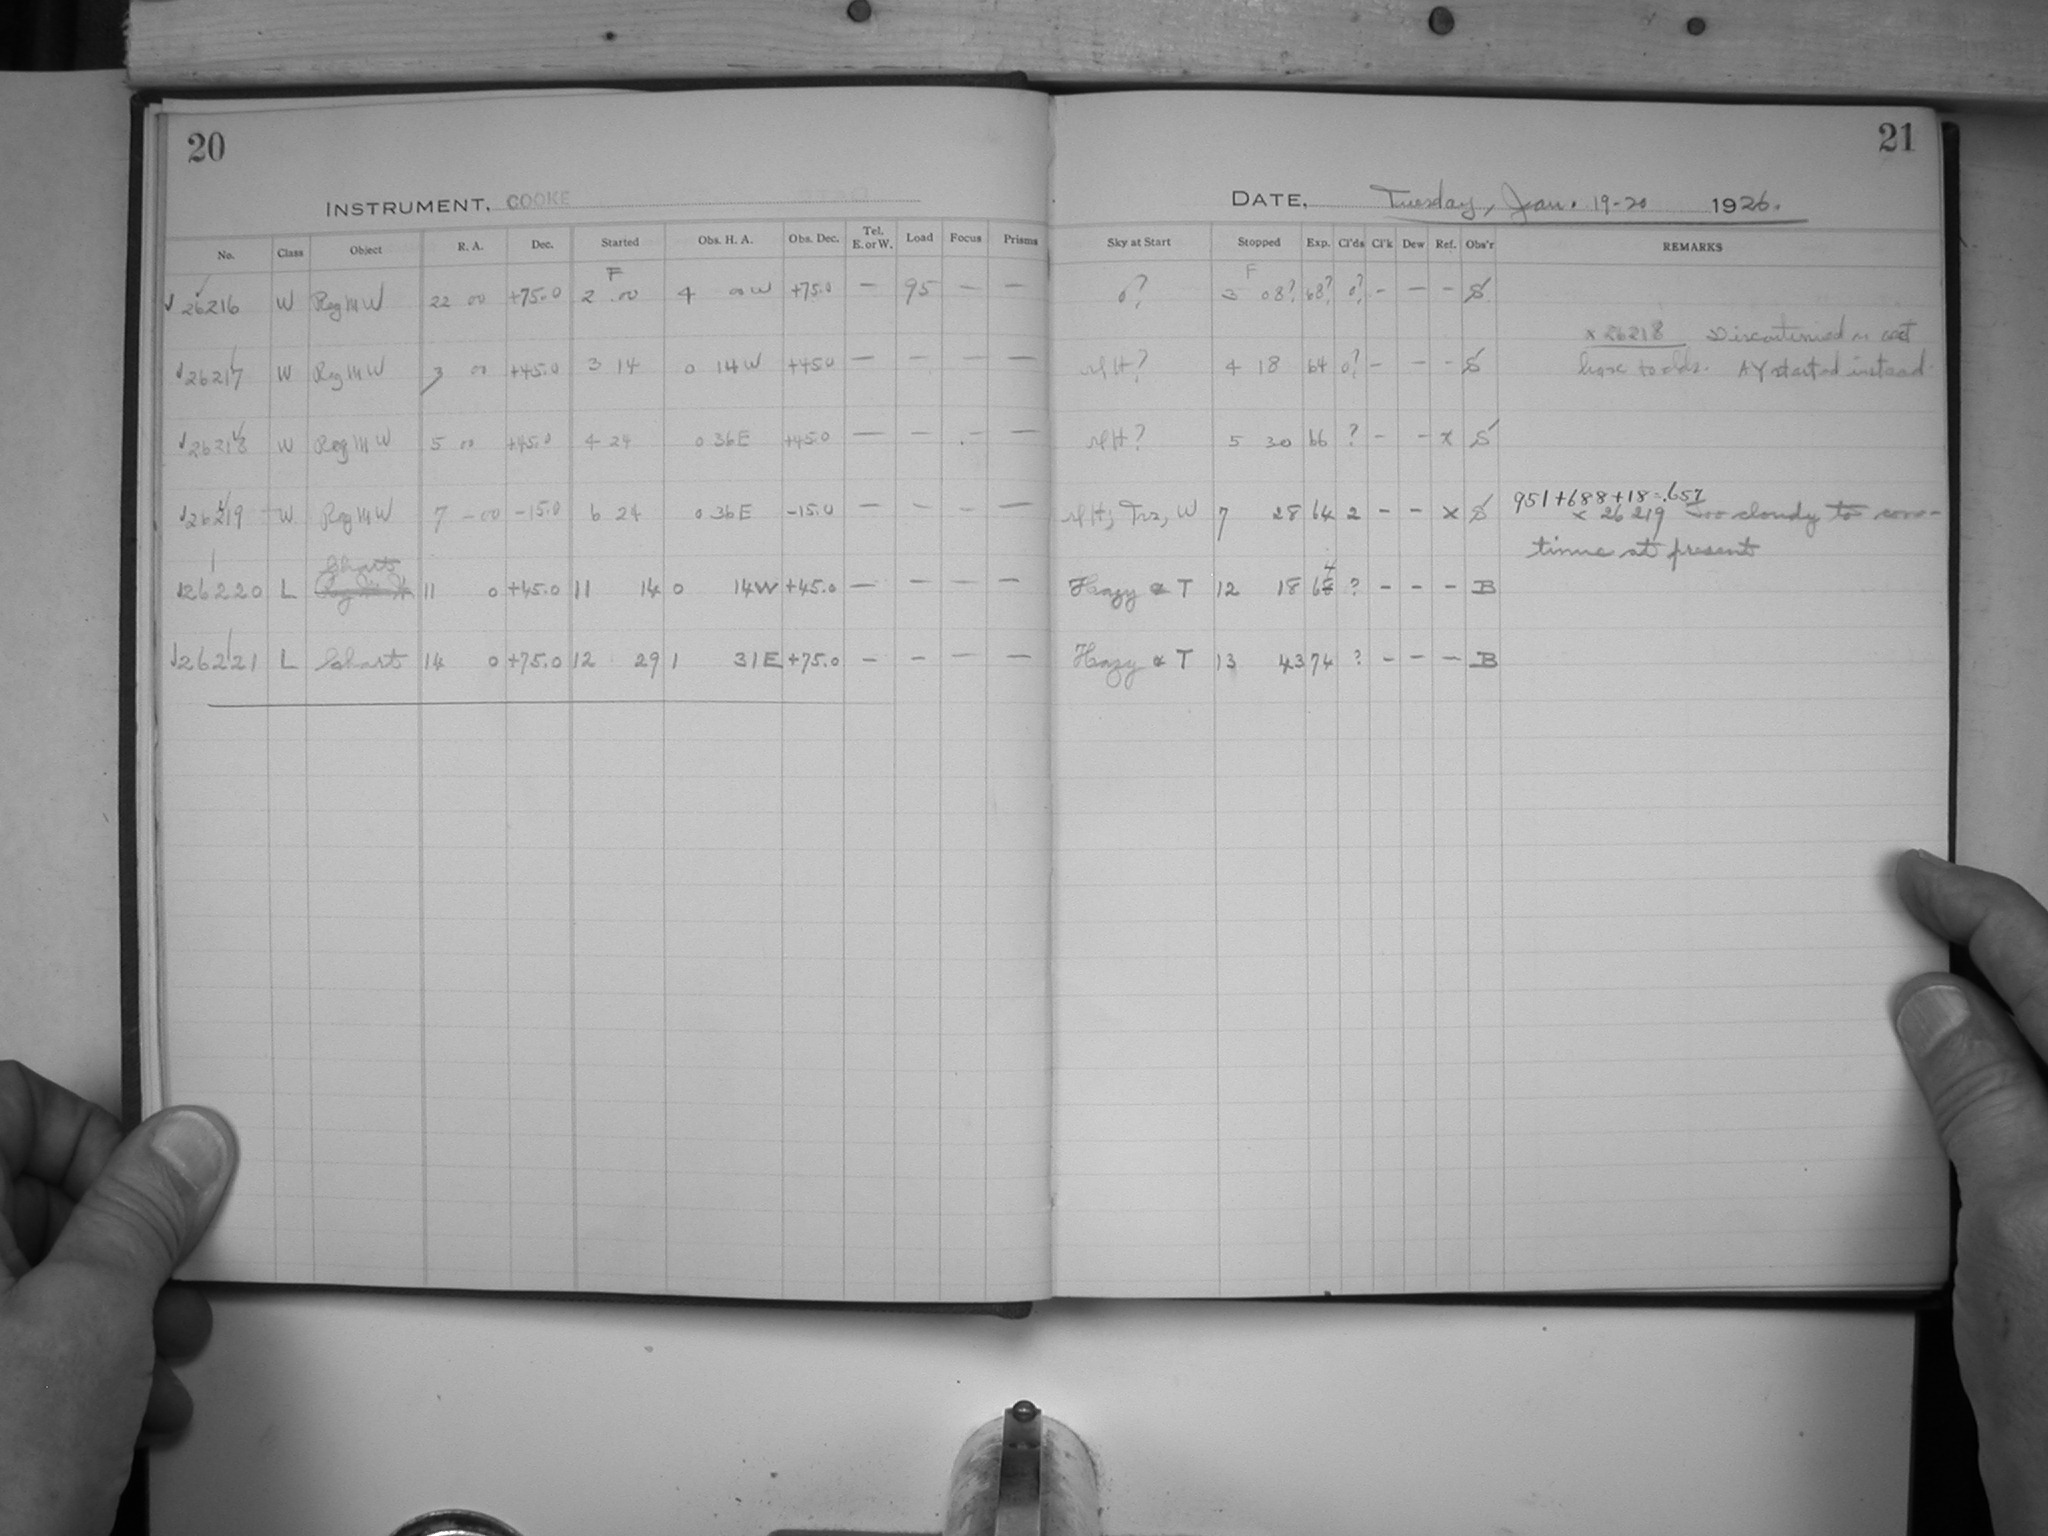 20
21
INSTRUMENT, COOKE
DATE, Tuesday, Jan. 19-20 1926.
No. Class Object R. A. Dec. Started Obs. H. A. Obs. Dec. Tel. E. or W. Load Focus Prisms Sky at Start Stopped Exp. Cl'ds Cl'k Dew Ref. Obs'r REMARKS
F F
26216 W Reg M W 22 00 +75.0 2 00 4 00 W +75.0 — 95 — — 0? 3 08? 68? 0? - — - S
x 26218 Discontinued
26217 W Reg M W 3 00 +45.0 3 14 0 14 W +45.0 — — — — H? 4 18 64 0? - — - S
AY started instead.
26218 W Reg M W 5 00 +45.0 4 24 0 36 E +45.0 — — — — H? 5 30 66 ? - - x S
951+688+18=.657
26219 W Reg M W 7 00 -15.0 6 24 0 36 E -15.0 — — — — W 7 28 64 2 - - x S x 26219 Too cloudy to con-
tinue at present
Charts
26220 L 11 0 +45.0 11 14 0 14 W +45.0 — — — — Hazy & T 12 18 64 ? - - - B
26221 L Chart 14 0 +75.0 12 29 1 31 E +75.0 — — — — Hazy & T 13 43 74 ? - - - B